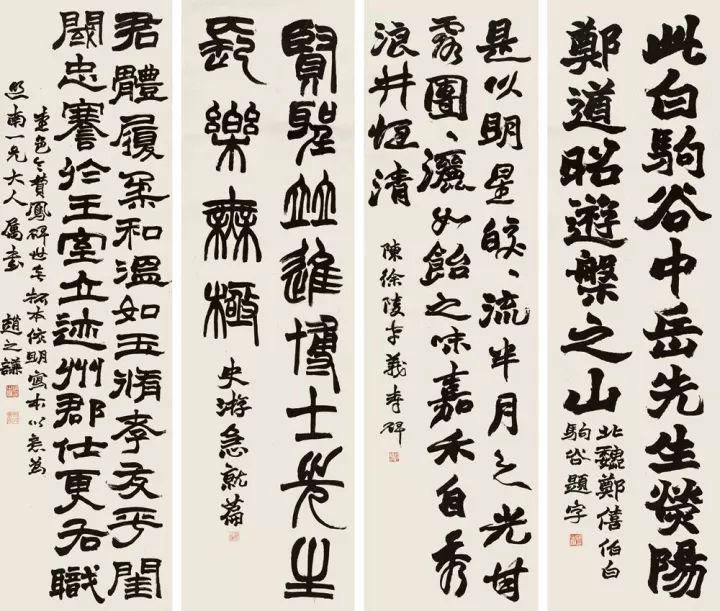 此白駒谷中岳先生熒陽
鄭道昭遊槃之山
北魏鄭僖伯白
駒谷題字
是以明星皎、流半月之光甘
露團、灑如飴之味嘉禾自秀
浪井恆清
陳徐陵孝義寺碑
賢聖竝進博士先生
長樂無極
史游急就篇
君體履柔和溫如玉脩孝友乎閨
閾忠謇於王室立迹州郡仕更右職
堂邑令費鳳碑世有拓本依明寫本以意為
煦南一兄大人屬書 趙之謙